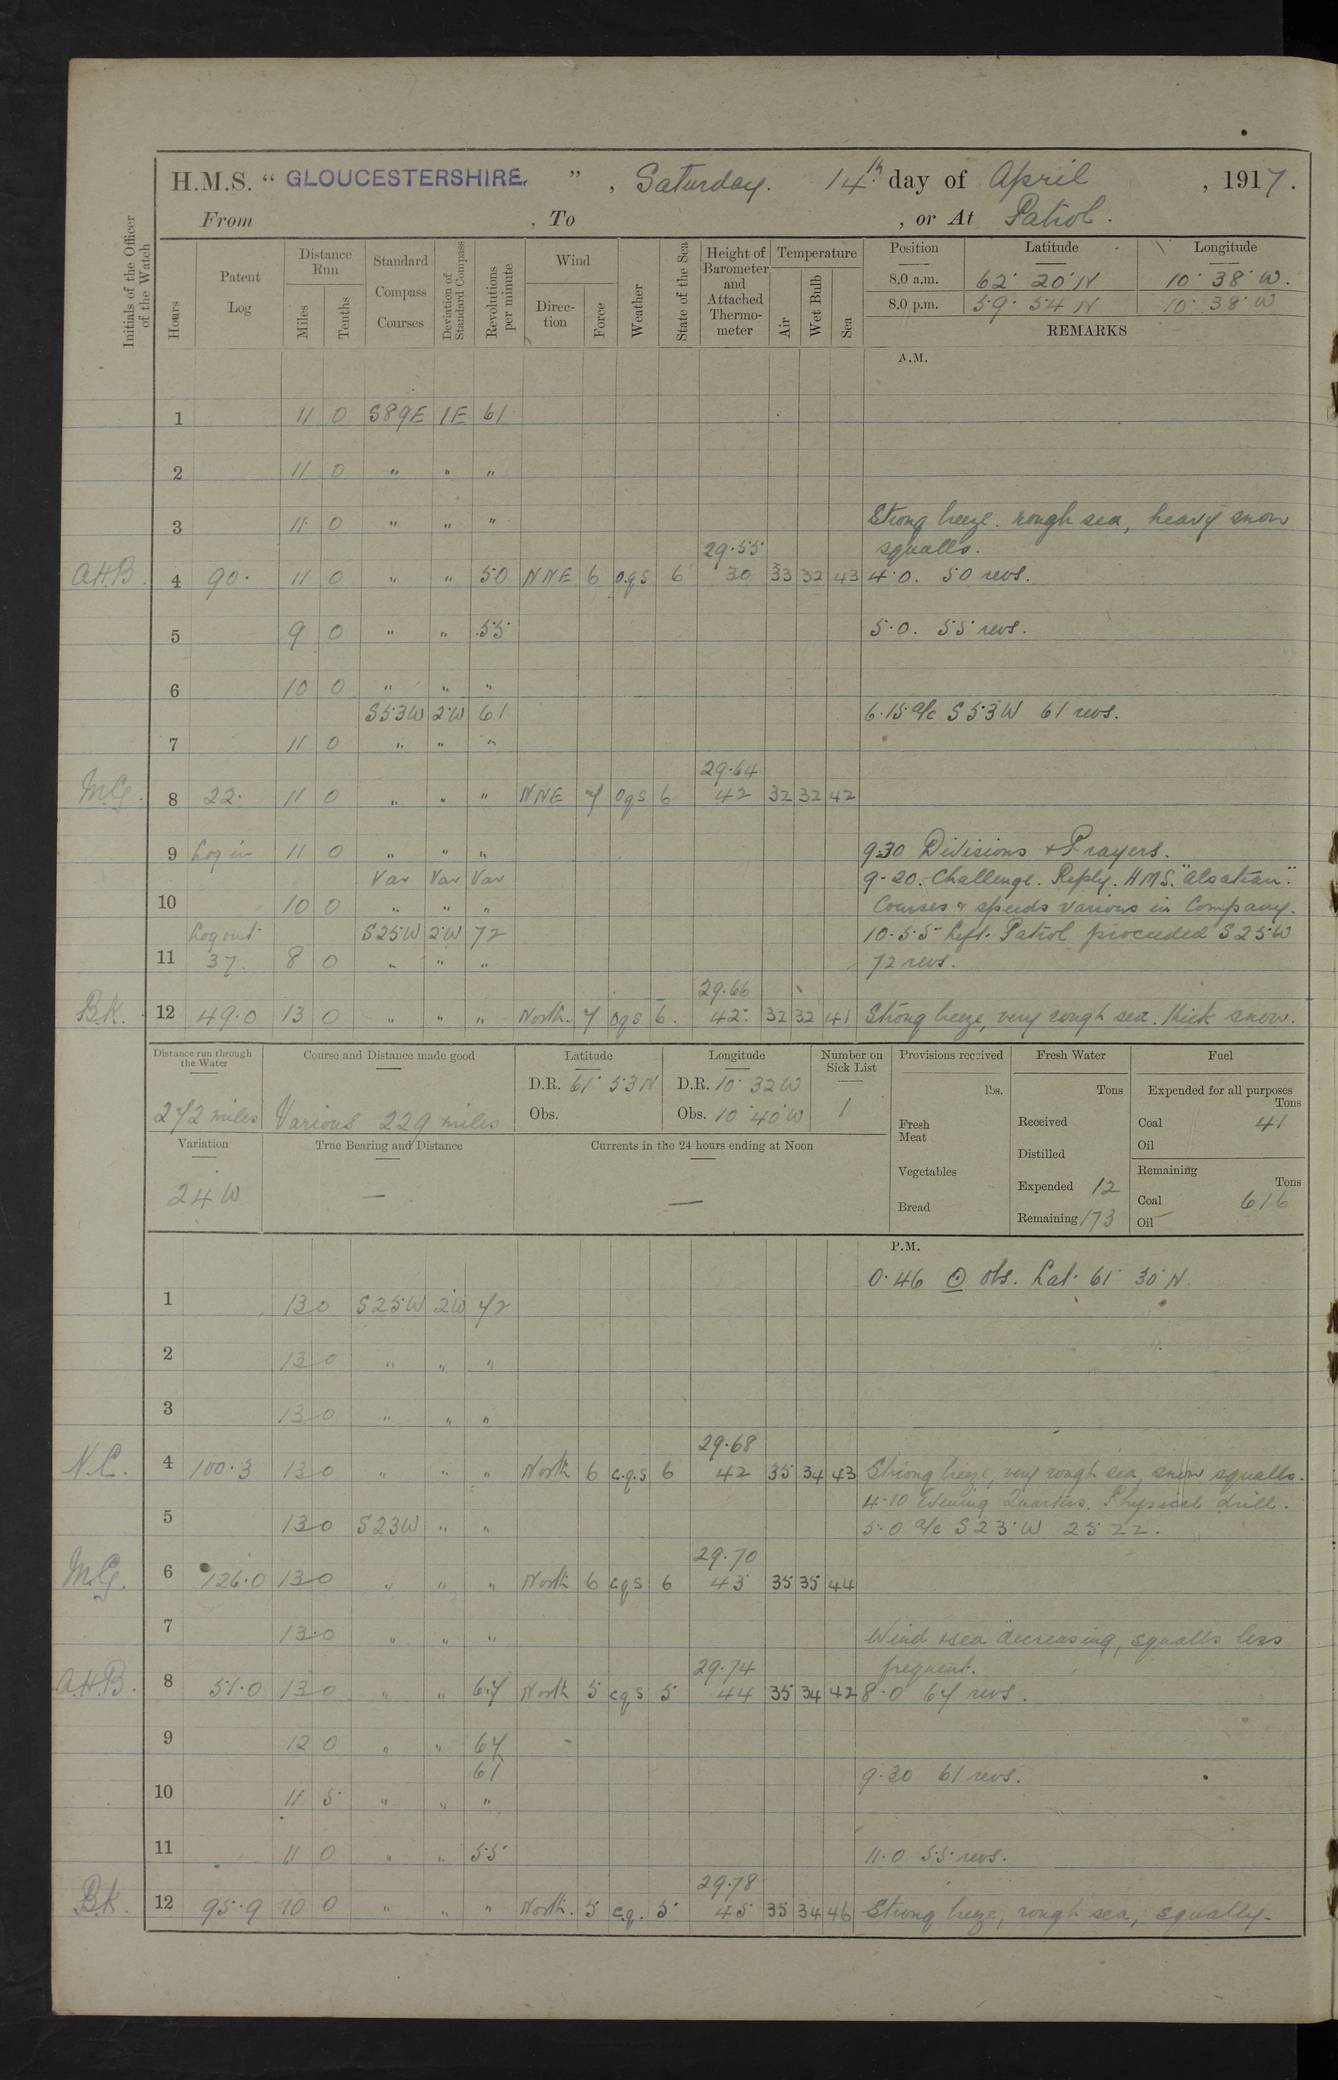 H.M.S. “ GLOUCESTERSHIRE. ” , Saturday. 14th day of April , 1917.
From , To , or At Patrol.
Initials of the Officer of the Watch
Hours
Patent Log
Distance Run
Miles
Tenths
Standard Compass Courses
Deviation of Standard Compass
Revolutions per minute
Wind
Direction
Force
Weather
State of the Sea
Height of Barometer and Attached Thermometer
Temperature
Air
Wet Bulb
Sea
Position Latitude Longitude
8.0 a.m. 62° 20' N 10° 38' W.
8.0 p.m. 59° 54 N 10° 38' W
REMARKS
A.M.
1 11 0 S89E 1E 61
2 11 0 " " "
3 11 0 " " " Strong breeze. rough sea, heavy snow
29.55 squalls.
A.H.B. 4 90. 11 0 " " 50 NNE 6 o.q.s 6 30 33 32 43 4.0. 50 revs.
5 9 0 " " 55 5.0. 55 revs.
6 10 0 " " "
S53W 2W 61 6.15 a/c S53W 61 revs.
7 11 0 " " "
29.64
M.G. 8 22. 11 0 " " " NNE 7 oqs 6 42 32 32 42
9 Log in 11 0 " " " 9.30 Divisions + Prayers.
Var Var Var 9-20. Challenge. Reply. H.M.S. "Alsatian".
10 10 0 " " " Courses & speeds various in Company.
Log out S25W 2W 72 10.55 Left Patrol proceeded S25W
11 37. 8 0 " " " 72 revs.
29.66
B.K. 12 49.0 13 0 " " " North. 7 oqs 6. 42. 32 32 41 Strong breeze, very rough sea. thick snow.
Distance run through the Water Course and Distance made good Latitude Longitude Number on Sick List Provisions received Fresh Water Fuel
D.R. 61° 53 N D.R. 10° 32 W
lbs. Tons Expended for all purposes Tons
272 miles Various 229 miles Obs. Obs. 10° 40' W 1
Fresh Meat Received Coal 41
Variation True Bearing and Distance Currents in the 24 hours ending at Noon
Oil
Distilled
Vegetables Remaining Tons
24 W — —
Expended 12 Coal 616
Bread Remaining 173 Oil
P.M.
0.46 ⊙ obs. Lat. 61° 30' N.
1 13 0 S25W 2W 72
2 13 0 " " "
3 13 0 " " "
29.68
N.C. 4 100.3 13 0 " " " North 6 c.q.s 6 42 35 34 43 Strong breeze, very rough sea, snow squalls.
4.10 Evening Quarters. Physical drill.
5 13 0 S23W " " 5.0 a/c S23W
29.70
M.G. 6 126.0 13 0 " " " North 6 cqs 6 43 35 35 44
7 13.0 " " " Wind & sea decreasing, squalls less
29.74 frequent.
A.H.B. 8 51.0 13 0 " " 67 North 5 cqs 5 44 35 34 42 8.0 67 revs.
9 12 0 " " 67
61 9.30 61 revs.
10 11 5 " " "
11 11 0 " " 55 11.0 55 revs.
29.78
B.K. 12 95.9 10 0 " " " North. 5 c.q. 5 45 35 34 46 Strong breeze, rough sea, squally.